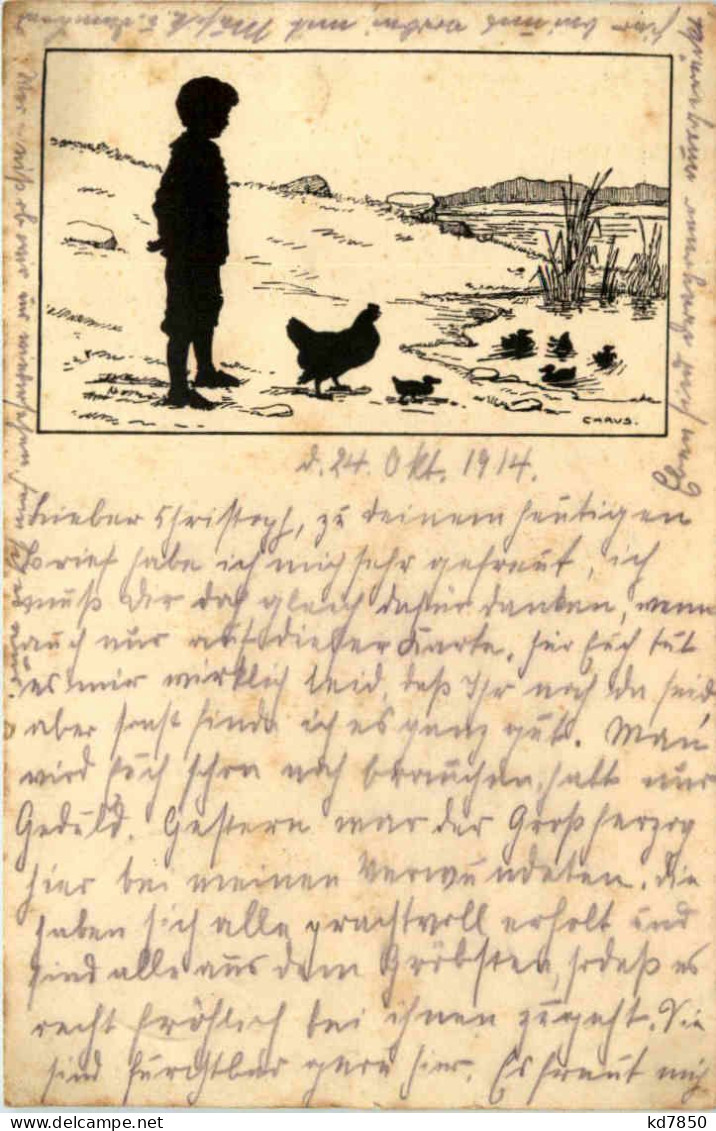 CARUS.
d. 24. Okt. 1914.
Lieber Christoph, zu Deinem heutigen
Brief habe ich mich sehr gefreut, ich
muß Dir doch gleich dafür danken, wenn
auch nur auf dieser Karte. Für Euch tut
es mir wirklich leid, daß Ihr noch da seid
aber sonst finde ich es ganz gut. Man
wird Euch schon noch brauchen, habt nur
Geduld. Gestern war der Großherzog
hier bei meinen Verwundeten. Die
haben sich alle prachtvoll erholt und
sind alle aus dem Gröbsten, sodaß es
recht fröhlich bei ihnen zugeht. Sie
sind furchtbar gern hier. Es freut mich
kd7850